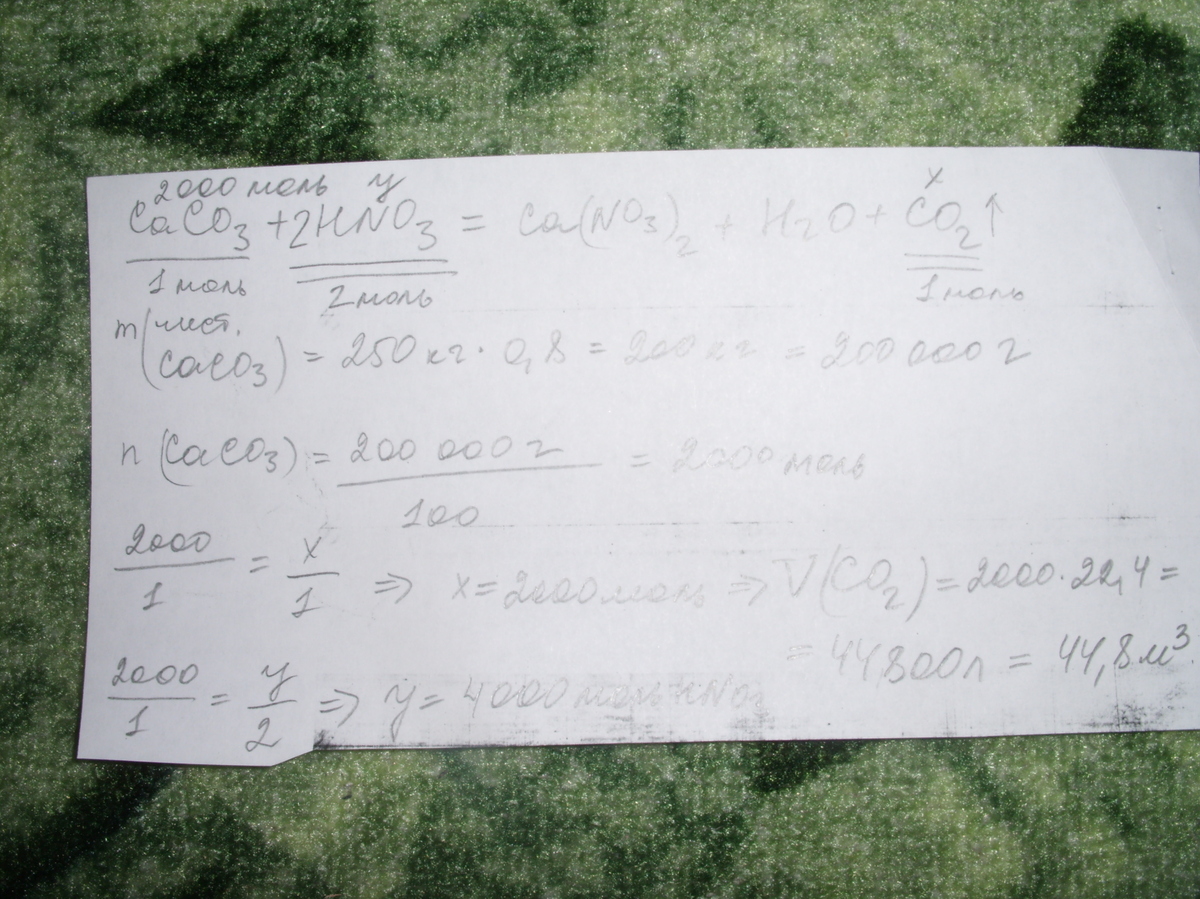 2000 моль у х
CaCO3 + 2HNO3 = Ca(NO3)2 + H2O + CO2↑
1 моль 2 моль 1 моль
m(чист. CaCO3) = 250 кг · 0,8 = 200 кг = 200 000 г
n (CaCO3) = 200 000 г / 100 = 2000 моль
2000/1 = x/1 ⇒ x = 2000 моль ⇒ V(CO2) = 2000 · 22,4 =
= 44800 л = 44,8 м³
2000/1 = у/2 ⇒ у = 4000 моль HNO3